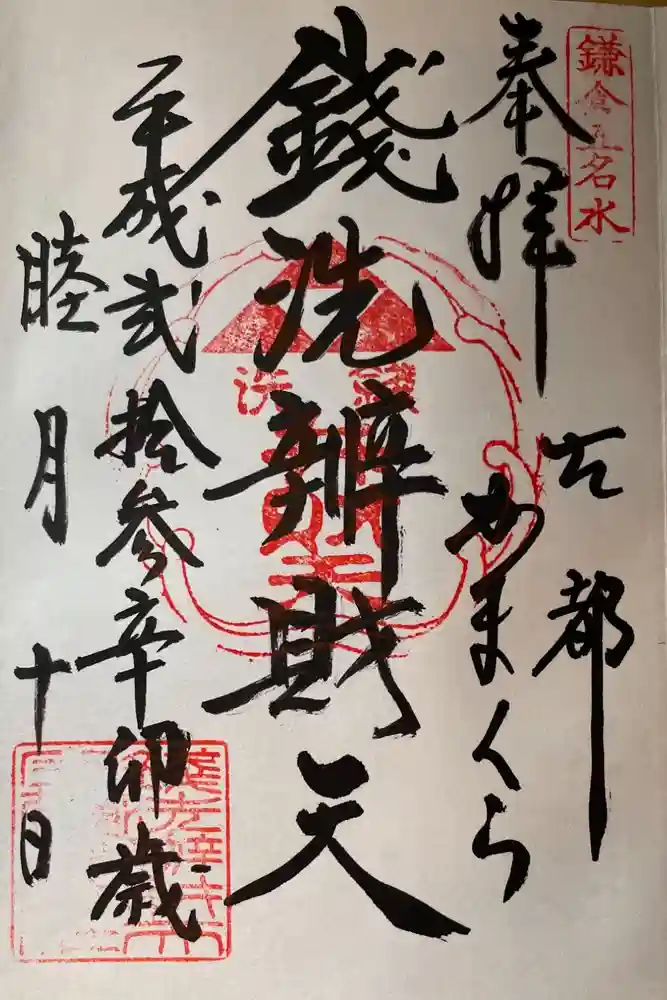 鎌倉五名水
奉拝
古都
かまくら
錢洗辨財天
平成弐拾参辛卯歳
睦月十日